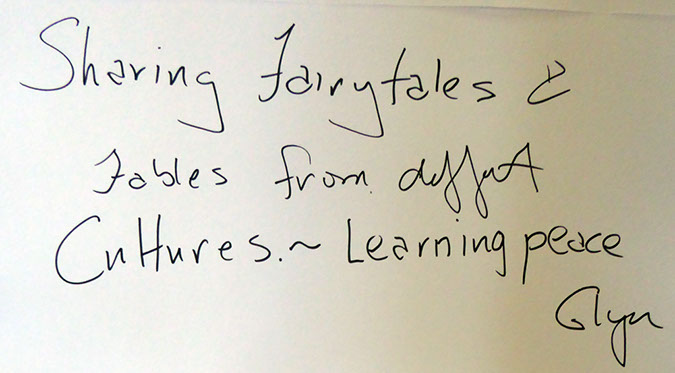 Sharing Fairytales &
Fables from diffent
Cultures. ~ Learning peace
Glyn